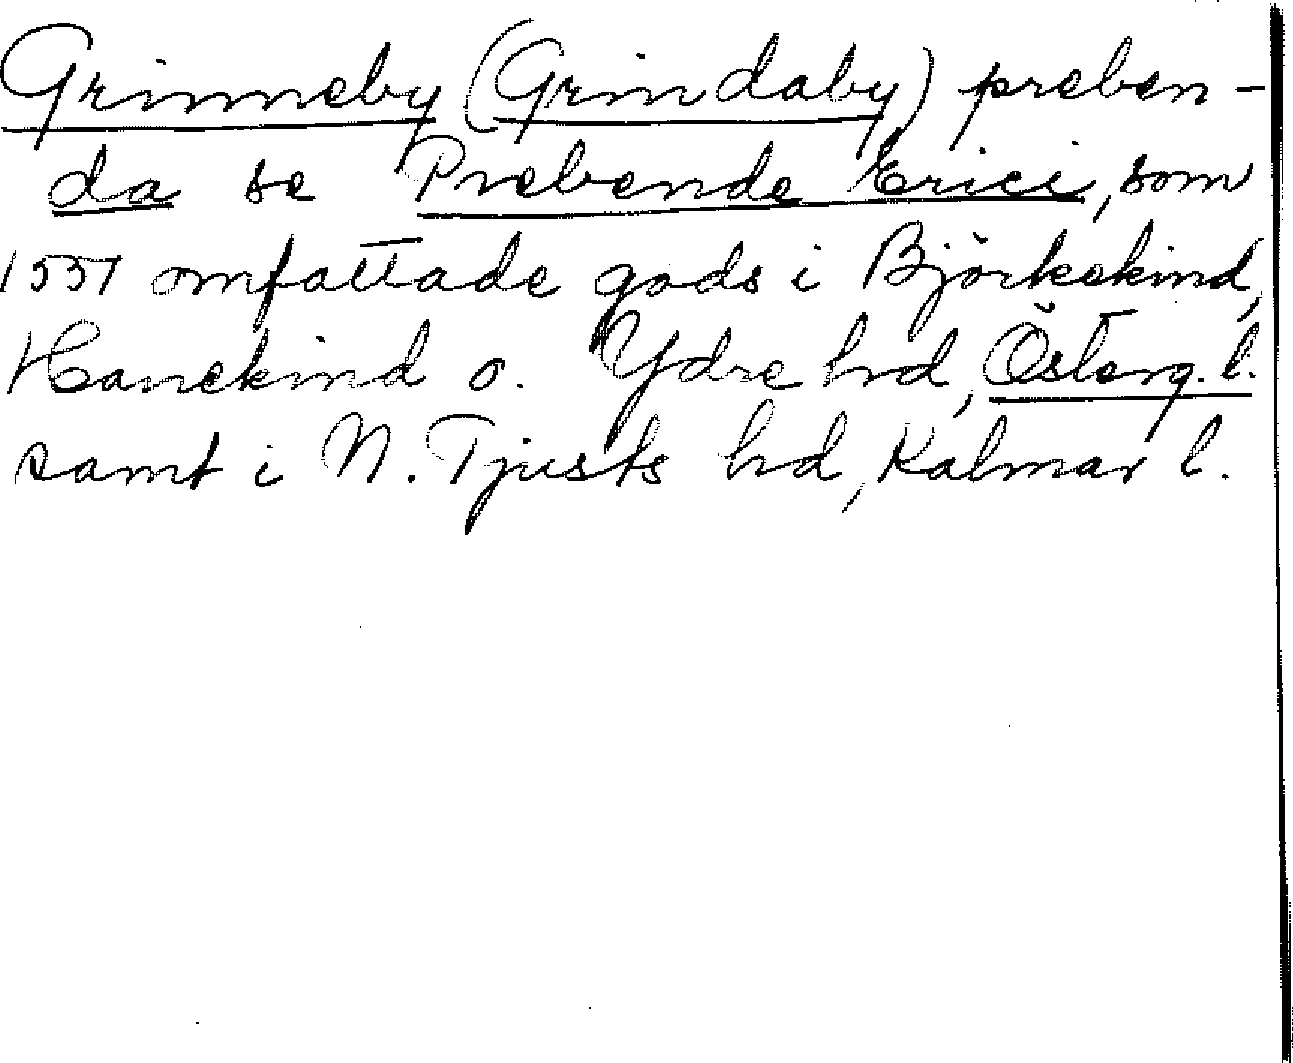 Grinneby (Grindaby) preben-
da se Prebende Erici, som
1557 omfattade gods i Björkekind,
Hanekind o. Ydre hrd, Österg. l.
samt i N. Tjusts hrd, Kalmar l.